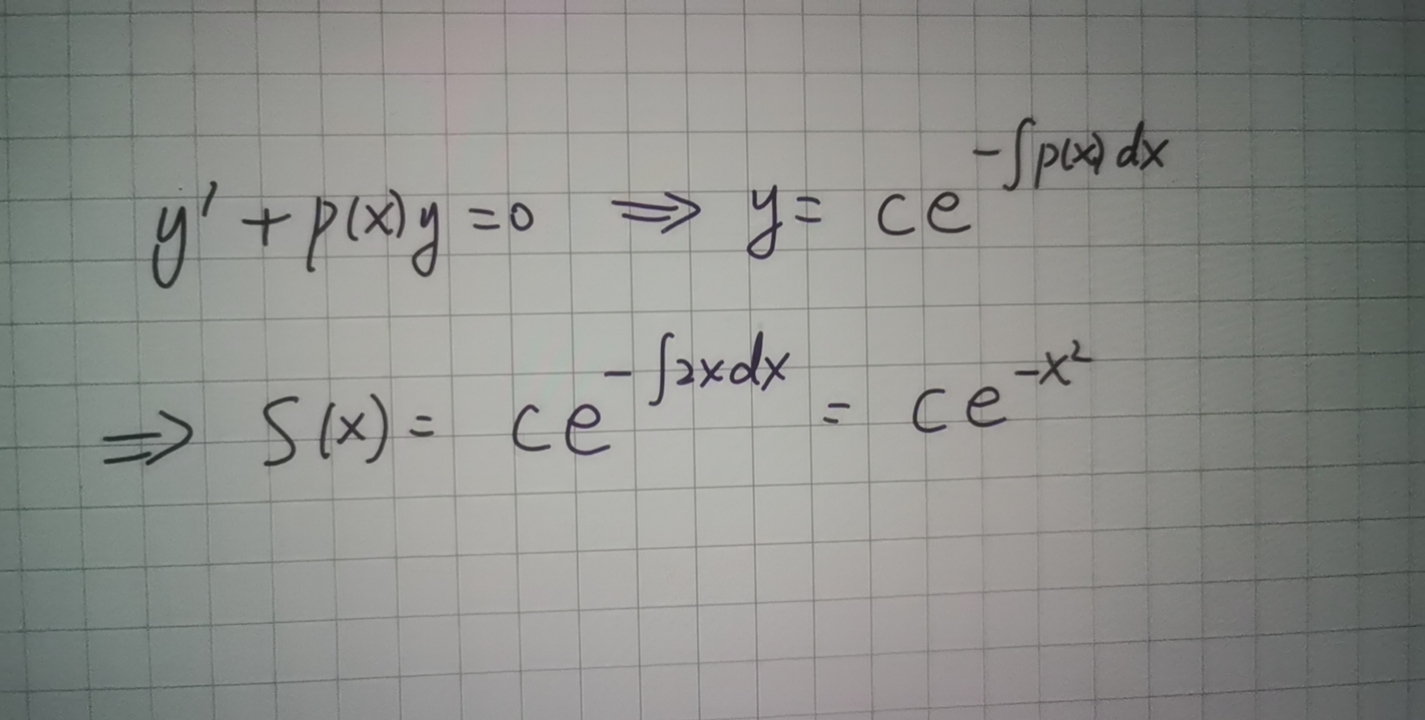 y' + p(x)y = 0 ⟹ y = ce^{-∫p(x)dx}
⟹ S(x) = ce^{-∫2xdx} = ce^{-x²}